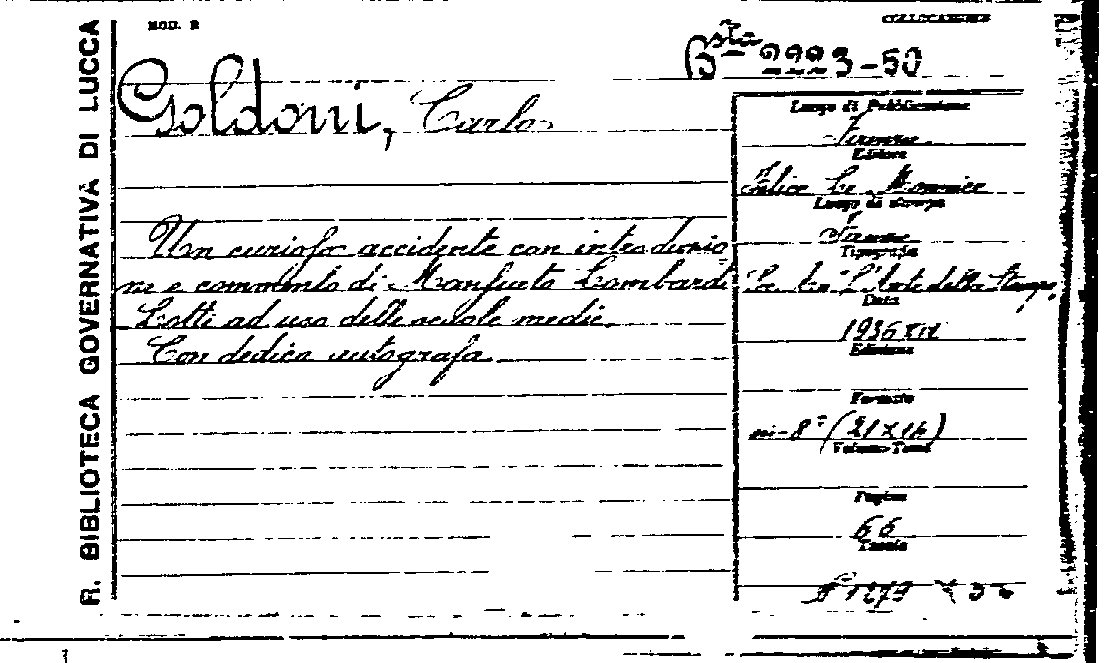 R. BIBLIOTECA GOVERNATIVA DI LUCCA
MOD. R
COLLOCAZIONE
Bsta 2223-50
Goldoni, Carlo
Un curioso accidente con introduzio
ne e commento di Manfredo Lombardi
Lotti ad uso delle scuole medie.
Con dedica autografa.
Luogo di Pubblicazione
Firenze
Editore
Felice Le Monnier
Luogo di stampa
Firenze
Tipografia
L'Arte della Stampa,
Data
1936 XIV
Edizione
Formato
in-8° (21X14)
Volume-Tomi
Pagine
66
Tavole